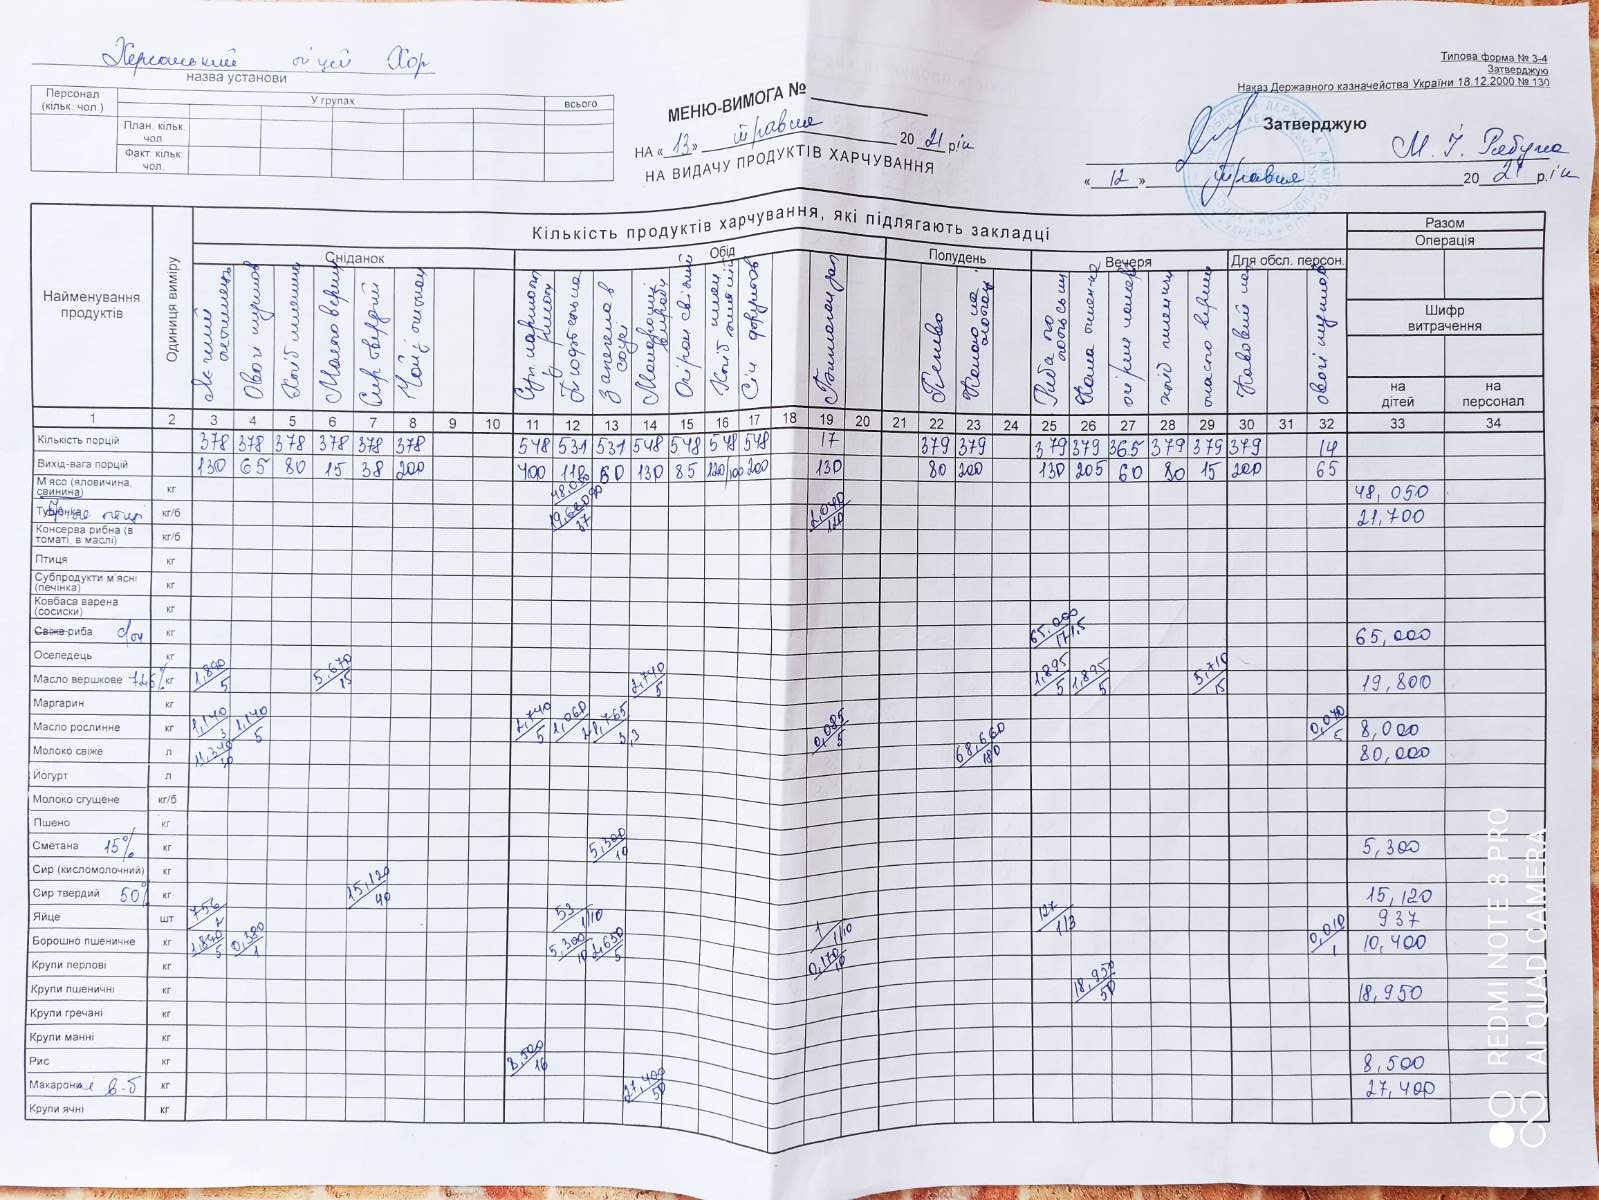 Херсонський ліцей ХОР
назва установи
Типова форма № 3-4
Затверджую
Наказ Державного казначейства України 18.12.2000 № 130
Персонал (кільк. чол.)
У групах
всього
План. кільк. чол.
Факт. кільк. чол.
МЕНЮ-ВИМОГА №
НА « 13 » травня 20 21 рік
НА ВИДАЧУ ПРОДУКТІВ ХАРЧУВАННЯ
Затверджую
М. І.
« 12 » травня 20 21 р.
Найменування продуктів
Одиниця виміру
Кількість продуктів харчування, які підлягають закладці
Разом
Операція
Сніданок
Обід
Полудень
Вечеря
Для обсл. персон.
Шифр витрачення
на дітей
на персонал
Овочі
Хліб пшеничний
Масло вершкове
Сир твердий
Суп
Запечена в соусі
Макаронні вироби
Огірок свіжий
Печиво
Риба по польськи
хліб пшеничний
масло вершк
1 2 3 4 5 6 7 8 9 10 11 12 13 14 15 16 17 18 19 20 21 22 23 24 25 26 27 28 29 30 31 32 33 34
Кількість порцій 378 378 378 378 378 378 548 531 531 548 548 548 548 17 379 379 379 379 365 379 379 379 14
Вихід-вага порцій 130 65 80 15 38 200 400 110 60 130 85 120/100 200 130 80 200 130 205 60 80 15 200 65
М'ясо (яловичина, свинина) кг 48,050
Тушенка кг/б 21,700
Консерва рибна (в томаті, в маслі) кг/б
Птиця кг
Субпродукти м'ясні (печінка) кг
Ковбаса варена (сосиски) кг
Свіжа риба с/м кг 65,000/171,5 65,000
Оселедець кг
Масло вершкове 72,5% кг 1,890/5 5,670/15 2,740/5 1,895/5 1,895/5 5,710/15 19,800
Маргарин кг
Масло рослинне кг 1,140/3 1,140/5 2,740/5 1,060/2 1,765/3,3 0,085/5 0,070/5 8,000
Молоко свіже л 11,340/30 68,660/180 80,000
Йогурт л
Молоко сгущене кг/б
Пшено кг
Сметана 15% кг 5,300/10 5,300
Сир (кисломолочний) кг
Сир твердий 50% кг 15,120/40 15,120
Яйце шт 756/2 53 1/10 1 1/10 127 1/3 937
Борошно пшеничне кг 1,890/5 0,380/1 5,300/10 2,650/5 0,170/10 0,010/1 10,400
Крупи перлові кг
Крупи пшеничні кг 18,950/50 18,950
Крупи гречані кг
Крупи манні кг
Рис кг 8,500/16 8,500
Макаронні в-б кг 27,400/50 27,400
Крупи ячні кг
REDMI NOTE 8 PRO
AI QUAD CAMERA